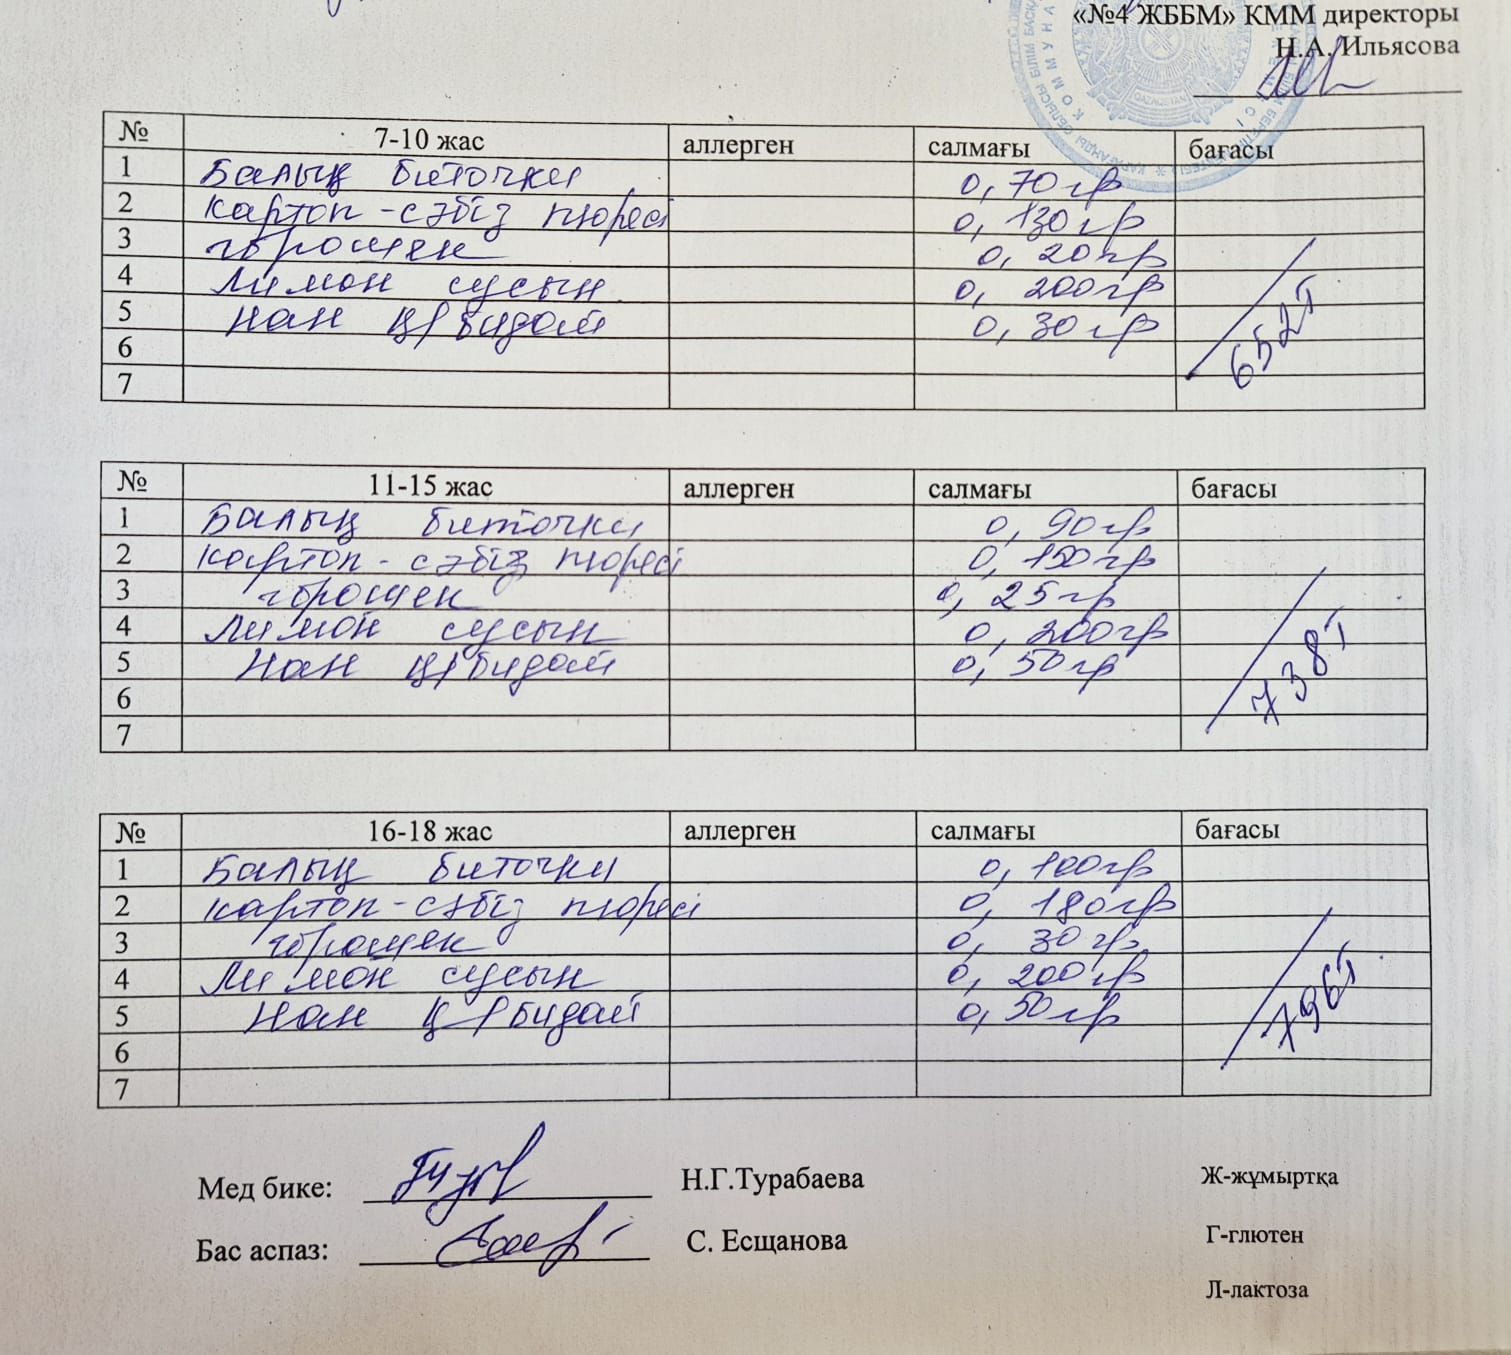 «№4 ЖББМ» КММ директоры
Н.А. Ильясова
№ 7-10 жас аллерген салмағы бағасы
1 Балық биточки 0,70гр
2 картоп-сәбіз пюресі 0,130гр
3 горошек 0,20гр
4 Лимон сусын 0,200гр
5 Нан ц/бидай 0,30гр
6
7
652т
№ 11-15 жас аллерген салмағы бағасы
1 Балық биточки 0,90гр
2 картоп-сәбіз пюресі 0,150гр
3 горошек 0,25гр
4 Лимон сусын 0,200гр
5 Нан ц/бидай 0,50гр
6
7
738т
№ 16-18 жас аллерген салмағы бағасы
1 Балық биточки 0,100гр
2 картоп-сәбіз пюресі 0,180гр
3 горошек 0,30гр
4 Лимон сусын 0,200гр
5 Нан ц/бидай 0,50гр
6
7
796т
Мед бике: Н.Г.Турабаева Ж-жұмыртқа
Бас аспаз: С. Есщанова Г-глютен
Л-лактоза